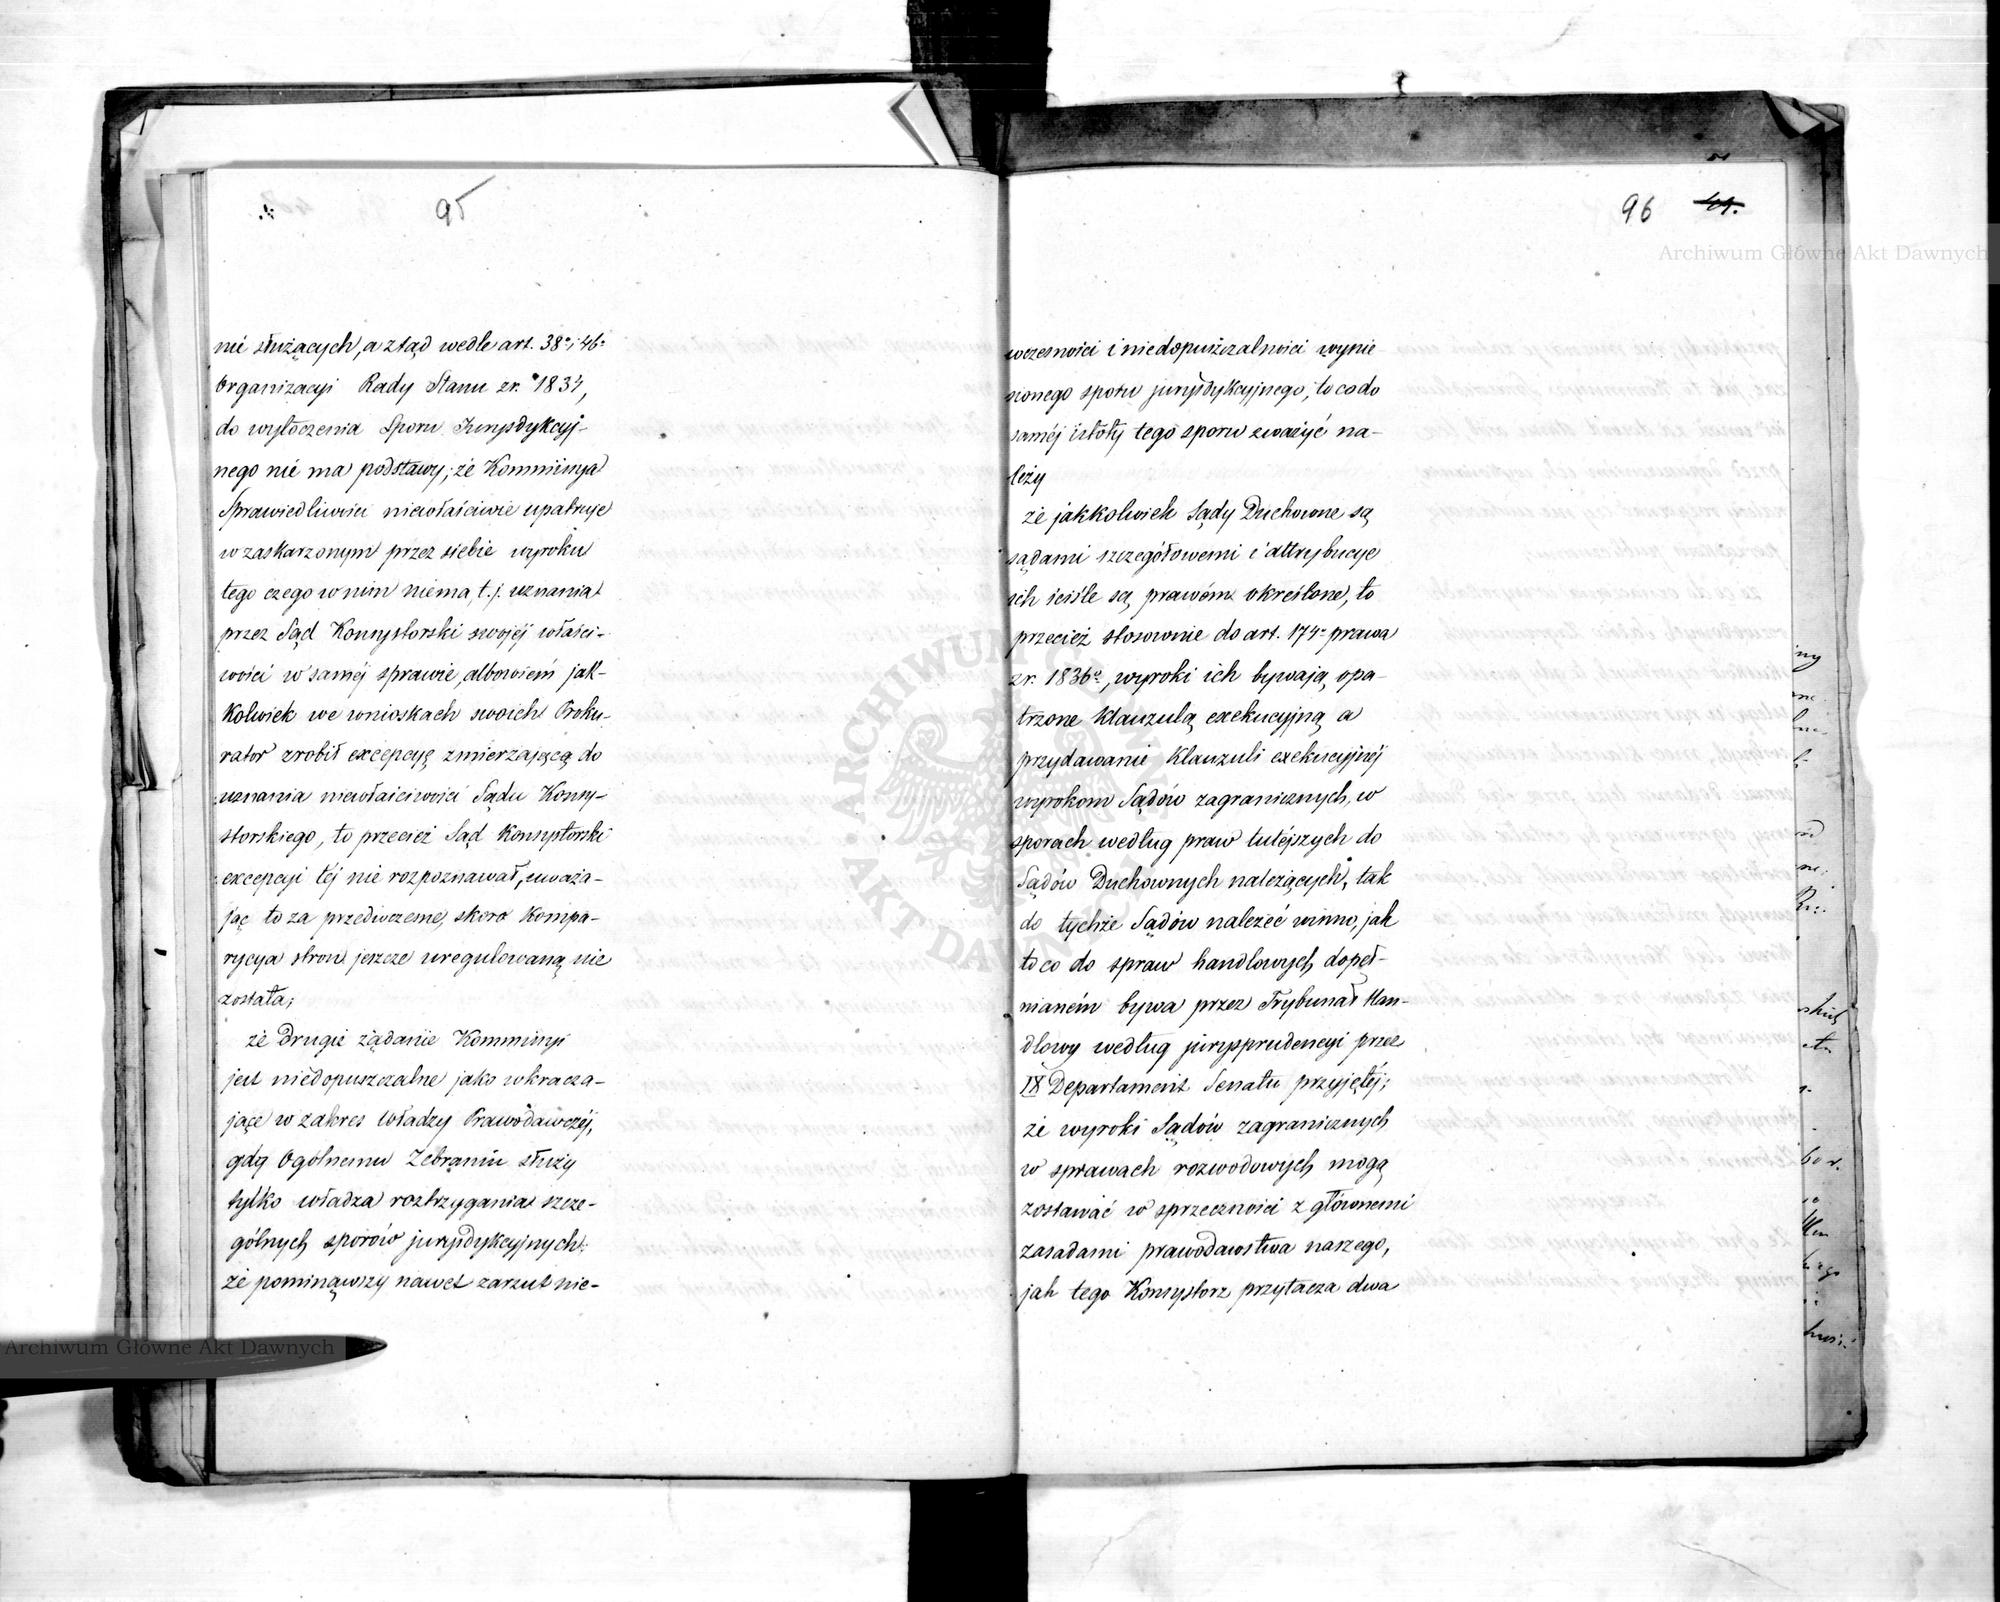 95
nie służących, a ztąd wedle art. 38º i 46º
Organizacyi Rady Stanu z r. 1834,
do wytoczenia Sporu Jurysdykcyj-
nego nie ma podstawy; że Kommissyja
Sprawiedliwości niewłaściwie upatruje
w zaskarżonym przez siebie wyroku
tego czego w nim niema, t. j. uznania
przez Sąd Konsystorski swojéj właści-
wości w saméj sprawie, albowiem jak-
kolwiek we wnioskach swoich Proku-
rator zrobił excepcyę zmierzającą do
uznania niewłaściwości Sądu Konsy-
storskiego, to przecież Sąd Konsystorski
excepcyi téj nie rozpoznawał, uważa-
jąc to za przedwczesne, skoro kompa-
rycya stron jeszcze uregulowaną nie
została;
że drugie żądanie Kommissyi
jest niedopuszczalne jako wkracza-
jące w zakres Władzy Prawodawczéj,
gdy Ogólnemu Zebraniu służy
tylko władza rozstrzygania szcze-
gólnych sporów jurysdykcyjnych;
że pominąwszy nawet zarzut nie-
96 41.
wczesności i niedopuszczalności wynie
sionego sporu jurysdykcyjnego, to co do
saméj istoty tego sporu zważyć na-
leży
że jakkolwiek Sądy Duchowne są
sądami szczegółowemi i attrybucye
ich ściśle są prawem określone, to
przecież stosownie do art. 174º prawa
z r. 1836º, wyroki ich bywają opa-
trzone klauzulą exekucyjną a
przydawanie klauzuli exekucyjnéj
wyrokom Sądów zagranicznych, w
sporach według praw tutejszych do
Sądów Duchownych należących, tak
do tychże Sądów należeć winno, jak
to co do spraw handlowych dopeł-
nianém bywa przez Trybunał Han-
dlowy według jurysprudencyi przez
IX Departament Senatu przyjętéj;
że wyroki Sądów zagranicznych
w sprawach rozwodowych mogą
zostawać w sprzeczności z głównemi
zasadami prawodawstwa naszego,
jak tego Konsystorz przytacza dwa
Archiwum Główne Akt Dawnych
Archiwum Główne Akt Dawnych